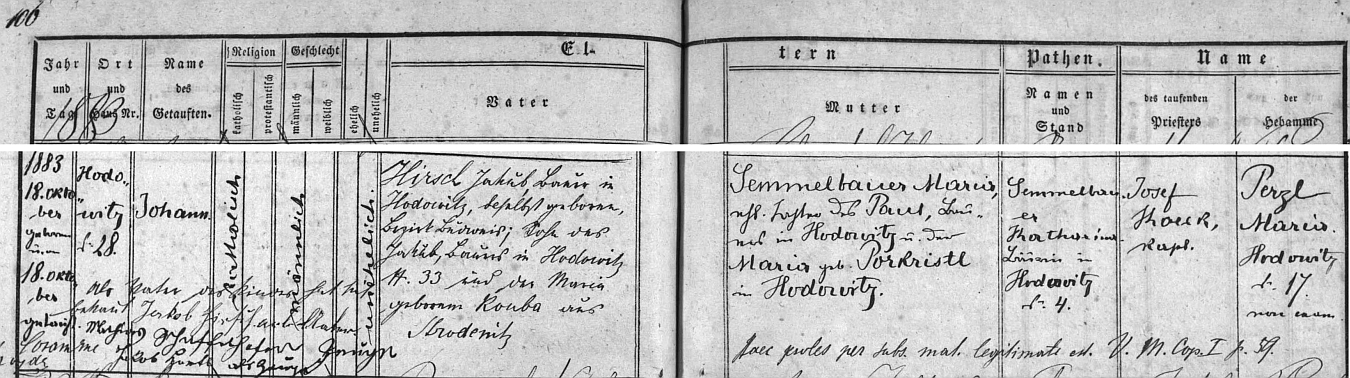 106
Jahr und Tag
Ort und Haus Nr.
Name des Getauften.
Religion
katholisch
protestantisch
Geschlecht
männlich
weiblich
ehelich
unehelich
El-
tern
Vater
Mutter
Pathen.
Namen und Stand
Name
des taufenden Priesters
der Hebamme
1883
1883
18. Okto
ber
geboren
u.
18. Okto
ber
getauft
Hodo-
witz
№ 28.
Johann
katholisch
männlich
unehelich.
Hirsch Jakub, Bauer in
Hodowitz, daselbst geboren,
Bezirk Budweis; Sohn des
Jakub, Bauers in Hodowitz
№ 33 und der Maria
geborenen Kouba aus
Strodenitz
Als Vater des Kindes hat sich
bekannt Jakob Hirsch
Mathias Schafelhofer Zeuge
Jakob als Zeuge
Semmelbauer Maria,
ehl. Tochter des Paul, Bau-
ers in Hodowitz u. der
Maria geb. Porkristl
in Hodowitz.
Semmelbau
er
Katharina
Bäuerin in
Hodowitz
№ 4.
Josef
Kapl.
Perzl
Maria.
Hodowitz
№ 17.
non exam.
Haec proles per subs. mat. legitimata est. V. M. Cop. I p. 59.